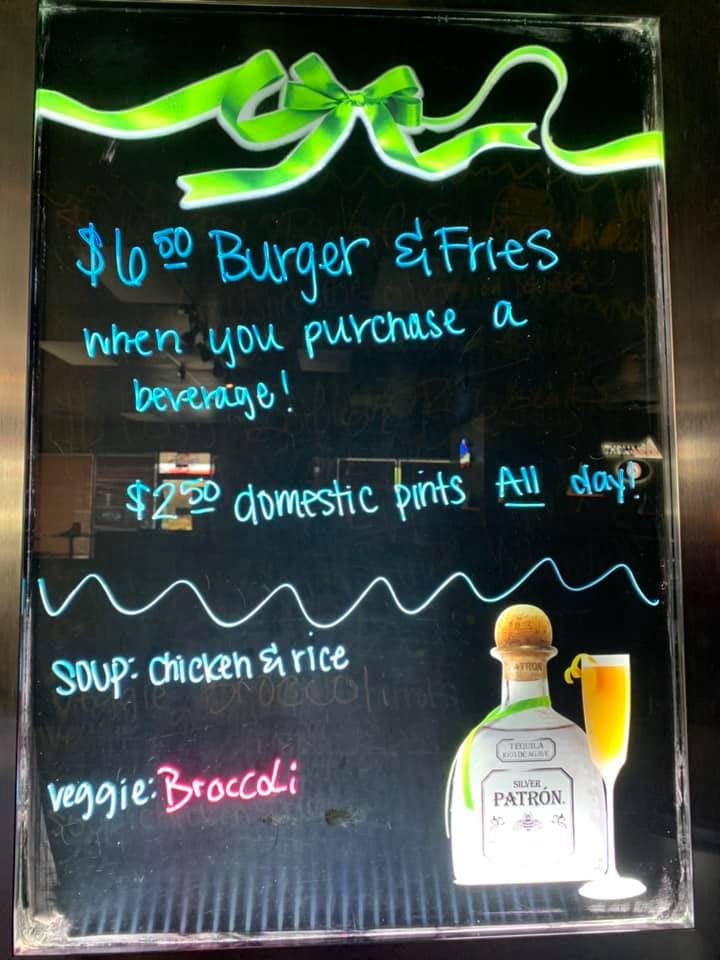 $6 50 Burger & Fries
when you purchase a
beverage!
$2 50 domestic pints All day!
Soup: chicken & rice
veggie: Broccoli
PATRÓN
TEQUILA
100% DE AGAVE
SILVER
PATRÓN.